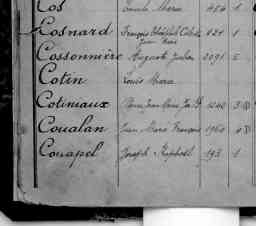 Cos Marie 454 1
Cosnard François 124 1
Jean René
Cossonnière Auguste Julien 2091 5
Cotin Louis Marie
Cotineaux Pierre Jean Marie 1240 3
Coualan Jean Marie François 1960
Couapel Joseph Raphaël 193 1